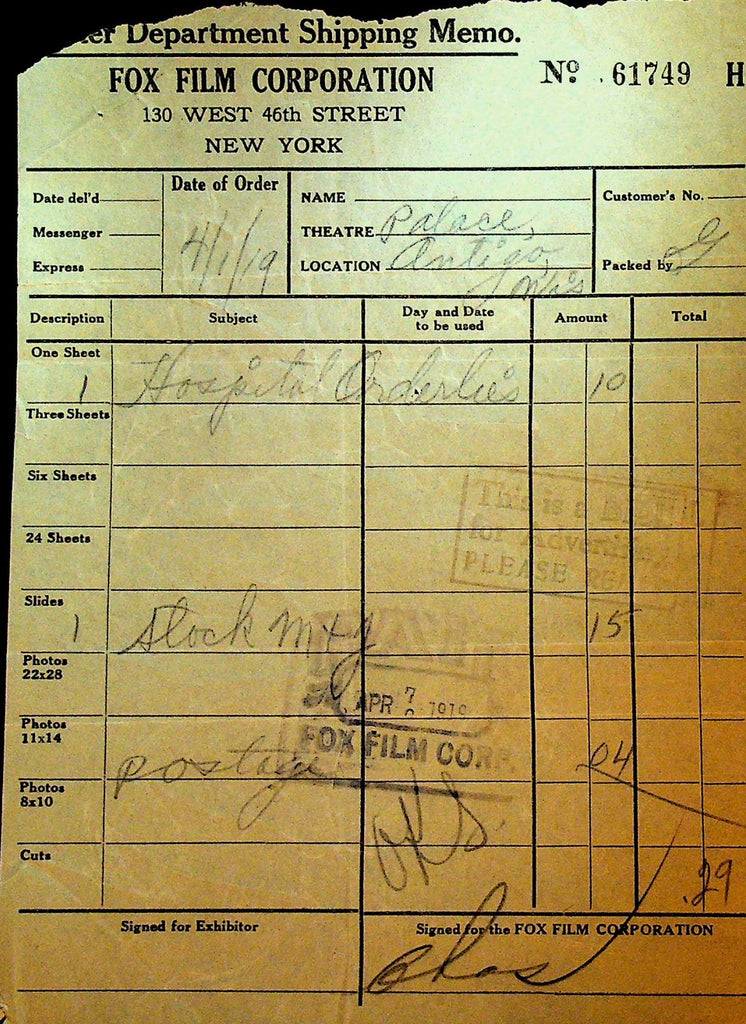 er Department Shipping Memo.
FOX FILM CORPORATION
130 WEST 46th STREET
NEW YORK
Nº 61749 H
Date del'd
Messenger
Express
Date of Order
4/1/19
NAME
THEATRE Palace,
LOCATION Antigo,
Wis
Customer's No.
Packed by G
Description Subject Day and Date to be used Amount Total
One Sheet
1 Hospital Orderlies 10
Three Sheets
Six Sheets
24 Sheets
This is a
for
PLEASE
Slides
1 Stock 15
Photos
22x28
APR 7 1919
Photos
11x14
FOX FILM CORP.
postage 04
Photos
8x10
OK
Cuts
.29
Signed for Exhibitor
Signed for the FOX FILM CORPORATION
Chas